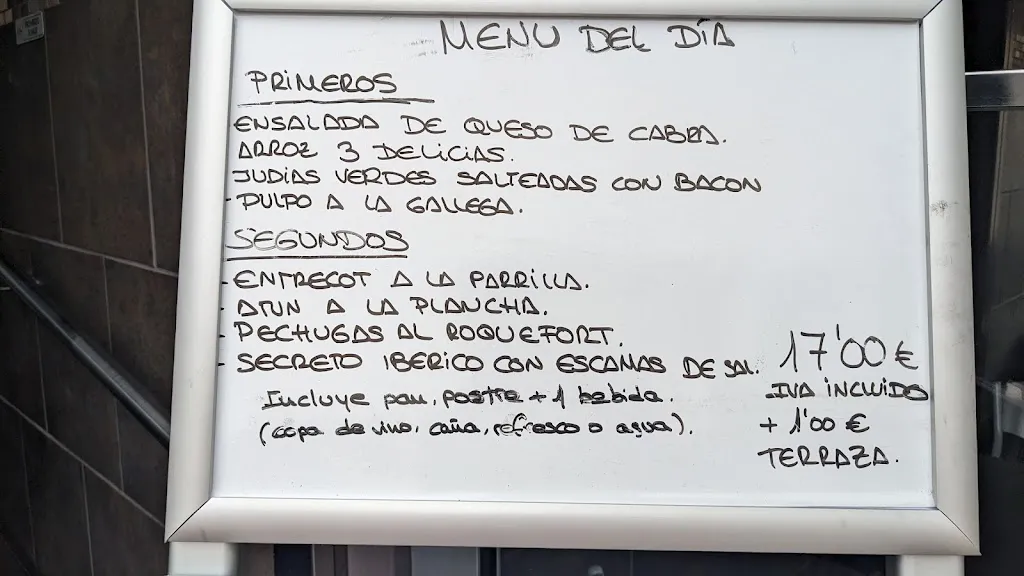 MENU DEL DÍA
PRIMEROS
ENSALADA DE QUESO DE CABRA.
ARROZ 3 DELICIAS.
JUDIAS VERDES SALTEADAS CON BACON
- PULPO A LA GALLEGA.
SEGUNDOS
- ENTRECOT A LA PARRILLA.
- ATUN A LA PLANCHA.
- PECHUGAS AL ROQUEFORT.
- SECRETO IBERICO CON ESCAMAS DE SAL.
Incluye pan, postre + 1 bebida.
(copa de vino, caña, refresco o agua).
17'00 €
IVA INCLUIDO
+ 1'00 €
TERRAZA.